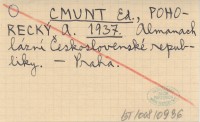 O CMUNT Ed., POHO-
RECKÝ A. 1937. Almanach
lázní Československé repub-
liky. — Praha.